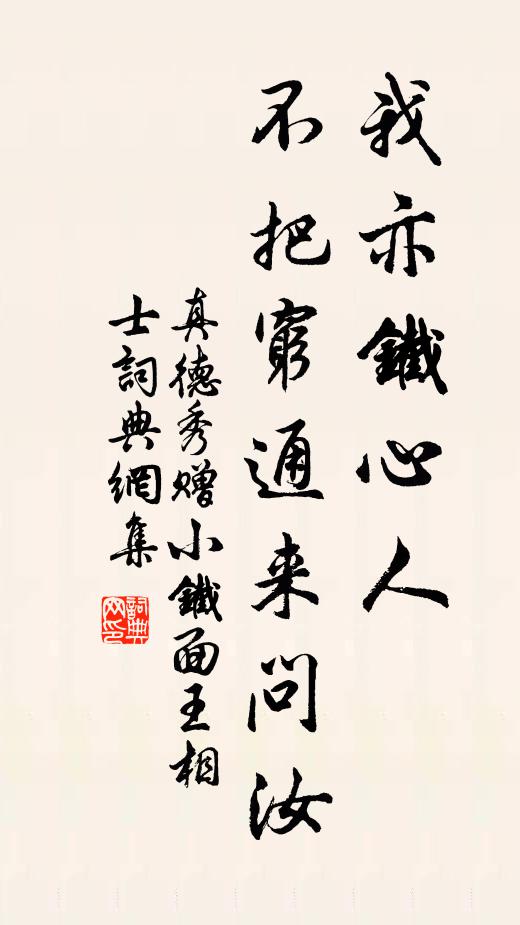 我亦鐵心人
不把窮通来問汝
真德秀贈小鐵面王相
士詞典網集
詞典網印